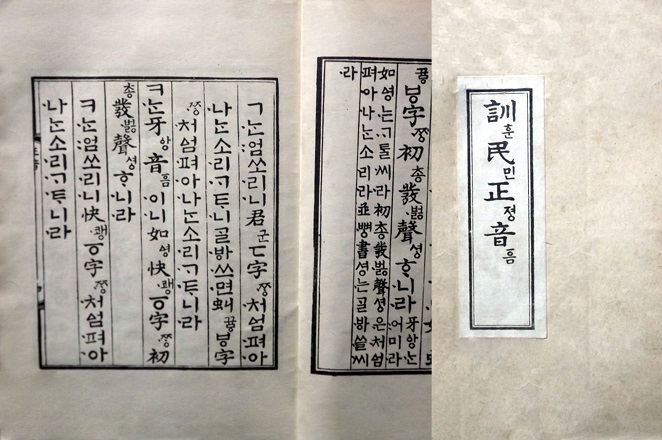 訓훈民민正졍音ᅙᅳᆷ
ㅸ字ᄍᆞᆼ初총發벓聲셩ᄒᆞ니라牙ᅌᅡᆼᄂᆞᆫ어미라
如ᅀᅧᆼᄂᆞᆫᄀᆞᄐᆞᆯ씨라初총發벓聲셩은처ᅀᅥᆷ
펴아나ᄂᆞᆫ소리라並뼝書셩ᄂᆞᆫᄀᆞᆯᄫᅡ쓸씨
라
ㄱᄂᆞᆫ엄쏘리니君군ㄷ字ᄍᆞᆼ처ᅀᅥᆷ펴아
나ᄂᆞᆫ소리ᄀᆞᄐᆞ니ᄀᆞᆯᄫᅡ쓰면虯뀨ᇢㅸ字
ᄍᆞᆼ처ᅀᅥᆷ펴아나ᄂᆞᆫ소리ᄀᆞᄐᆞ니라
ㅋᄂᆞᆫ牙ᅌᅡᆼ音ᅙᅳᆷ이니如ᅀᅧᆼ快쾡ㆆ字ᄍᆞᆼ初
총發벓聲셩ᄒᆞ니라
ㅋᄂᆞᆫ엄쏘리니快쾡ㆆ字ᄍᆞᆼ처ᅀᅥᆷ펴아
나ᄂᆞᆫ소리ᄀᆞᄐᆞ니라